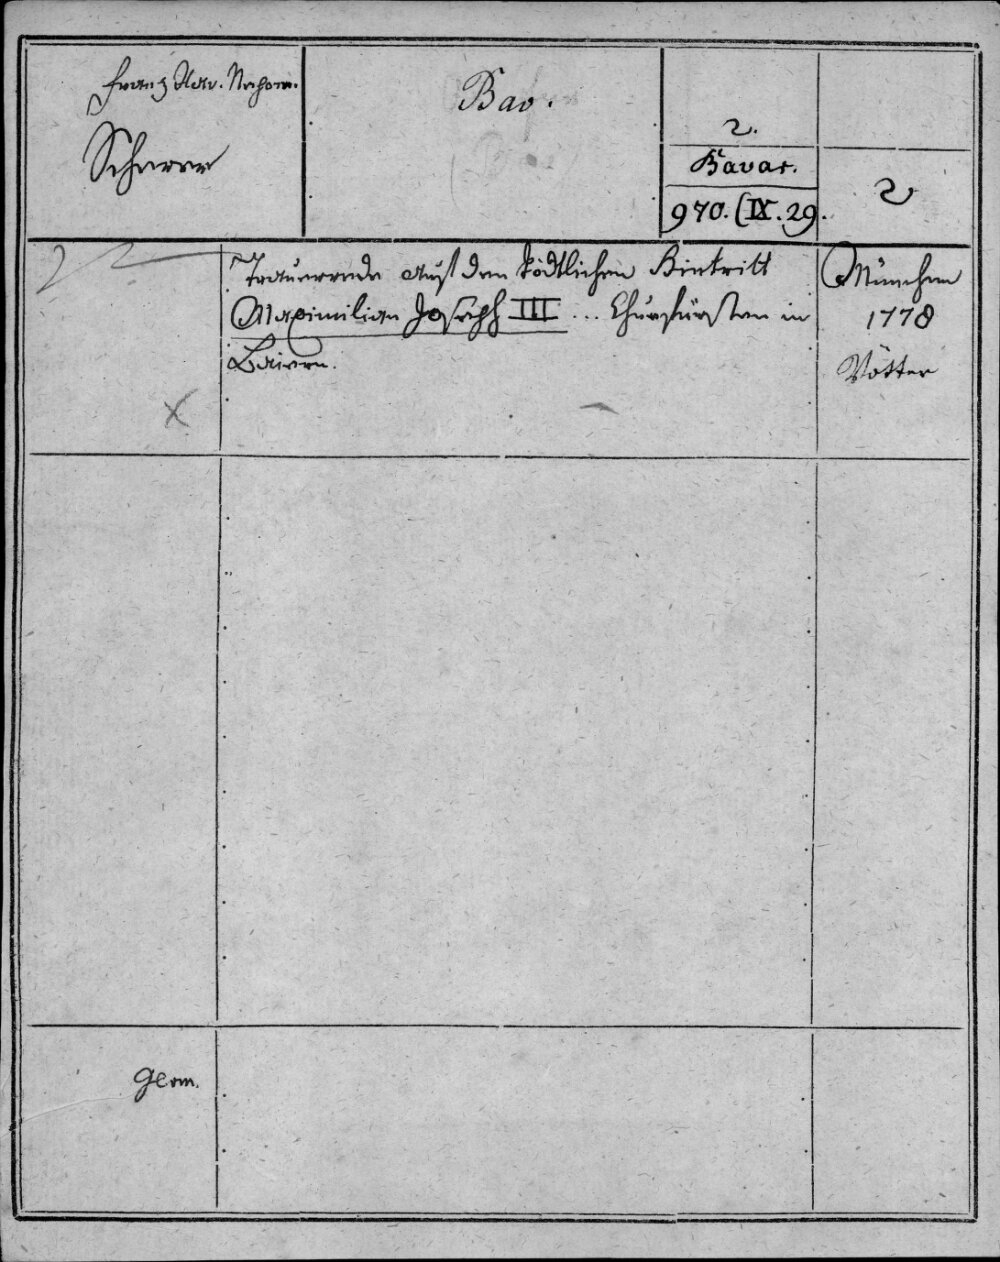 Franz Xav. Nepom.
Scherer
Bav.
2.
Bavar.
970. (IX. 29.
2
Trauerrede auf den tödtlichen Hintritt
Maximilian Joseph III ... Churfürsten in
Baiern.
München
1778
Vötter
X
Germ.